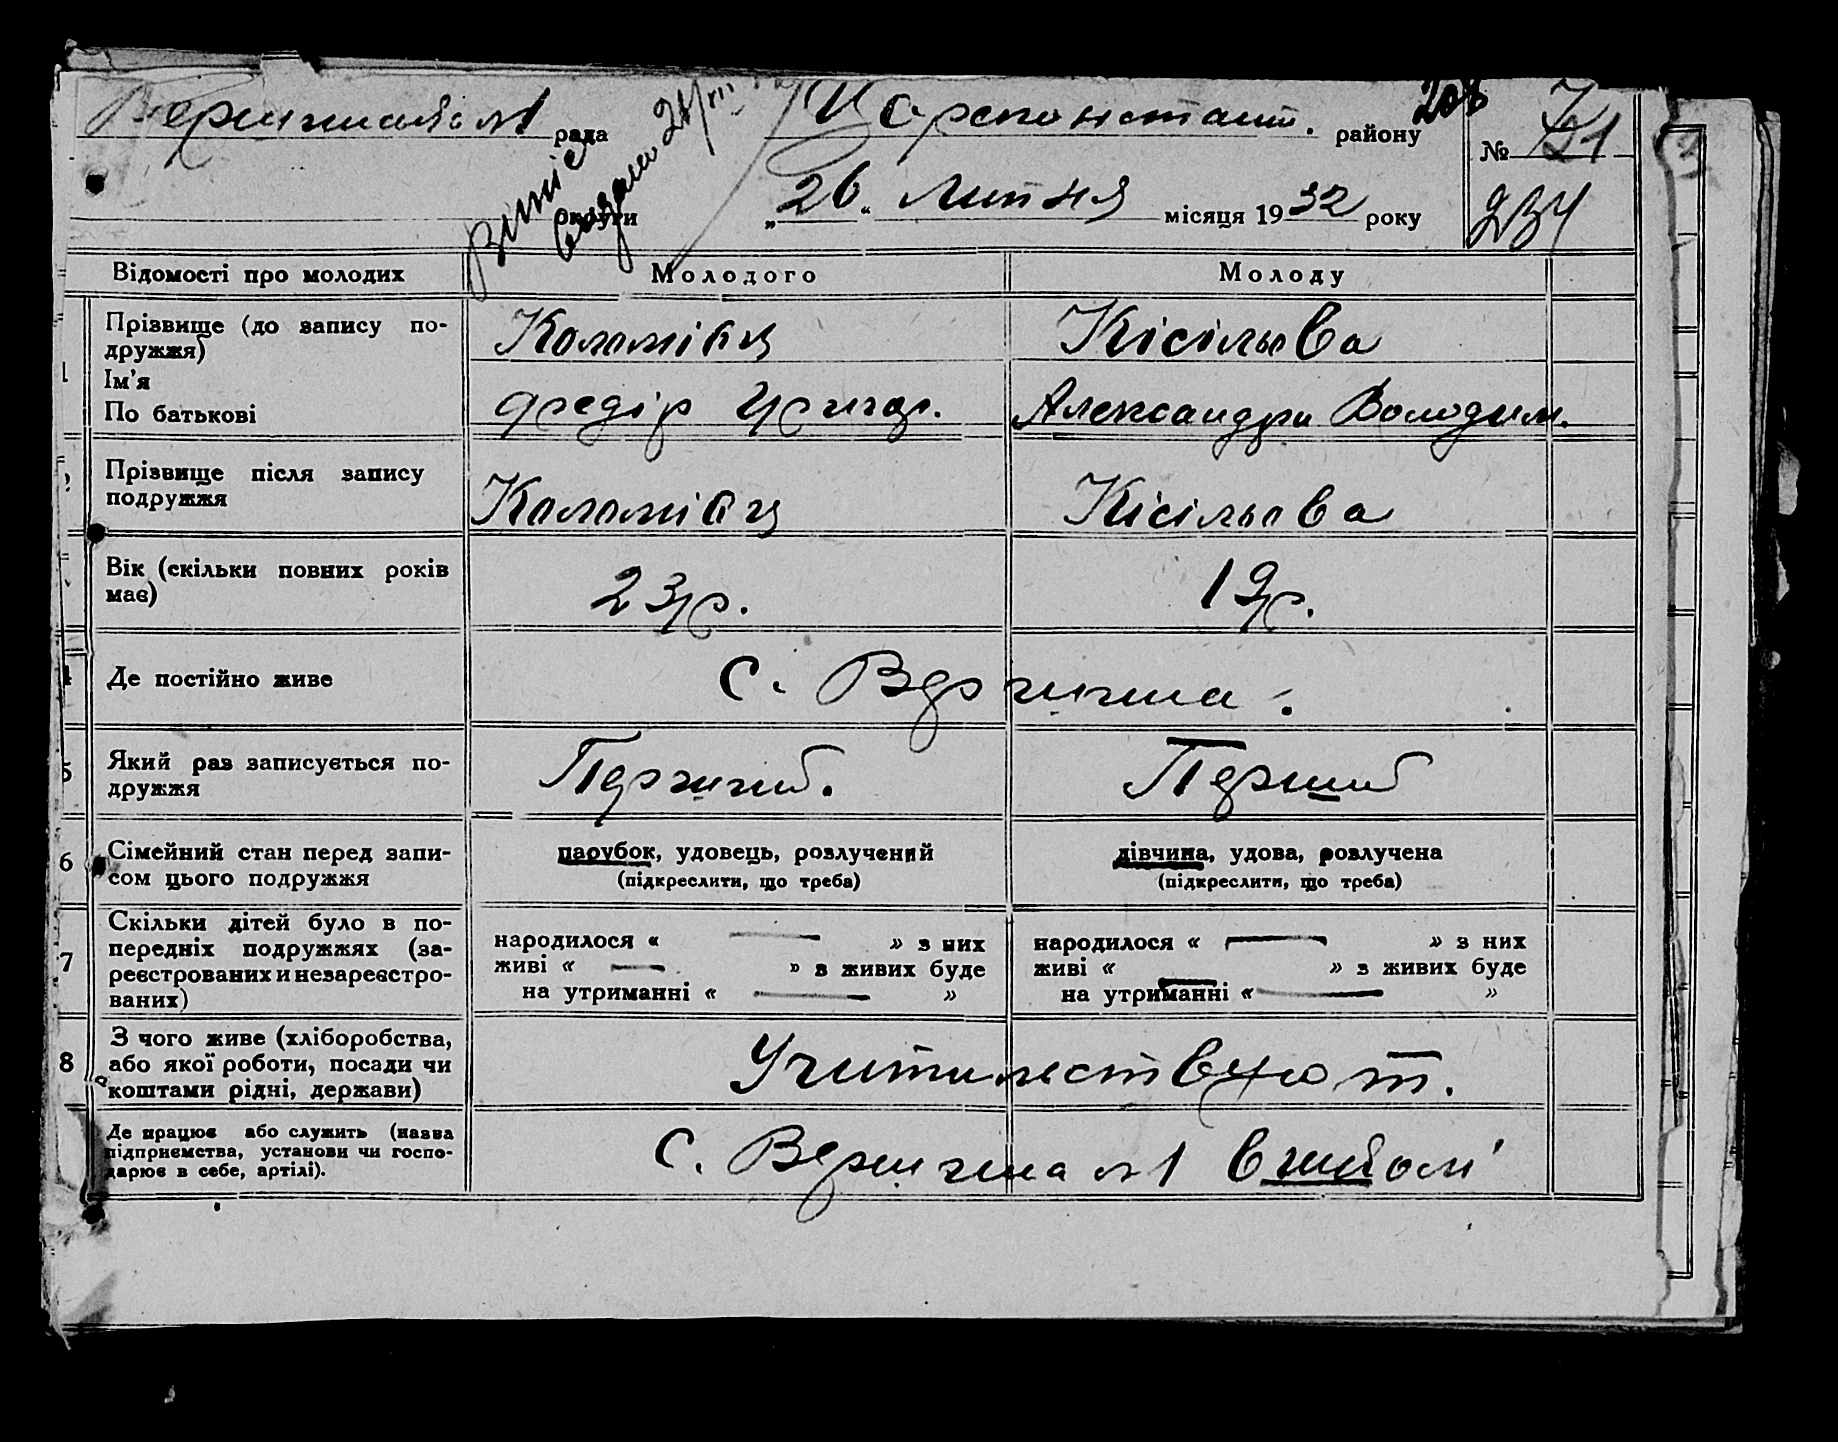 Вершинськ. №1 рада Царсконстант. району № 71
округи „26“ Липня місяця 1932 року 234
Відомості про молодих Молодого Молоду
1 Прізвище (до запису подружжя) Коломієц Кісільова
Ім'я
По батькові Федір Григор. Александра Володим.
Прізвище після запису подружжя Коломієц Кісільова
Вік (скільки повних років має) 23 р. 19 р.
4 Де постійно живе С. Вершина.
5 Який раз записується подружжя Перший. Перший
6 Сімейний стан перед записом цього подружжя парубок, удовець, розлучений дівчина, удова, розлучена
(підкреслити, що треба) (підкреслити, що треба)
7 Скільки дітей було в попередніх подружжях (зареєстрованих и незареєстрованих)
народилося « — » з них народилося « — » з них
живі « — » з живих буде живі « — » з живих буде
на утриманні « — » на утриманні « — »
8 З чого живе (хліборобства, або якої роботи, посади чи коштами рідні, держави) Учительствуют.
Де працює або служить (назва підприємства, установи чи господарює в себе, артілі). С. Вершина №1 в школі